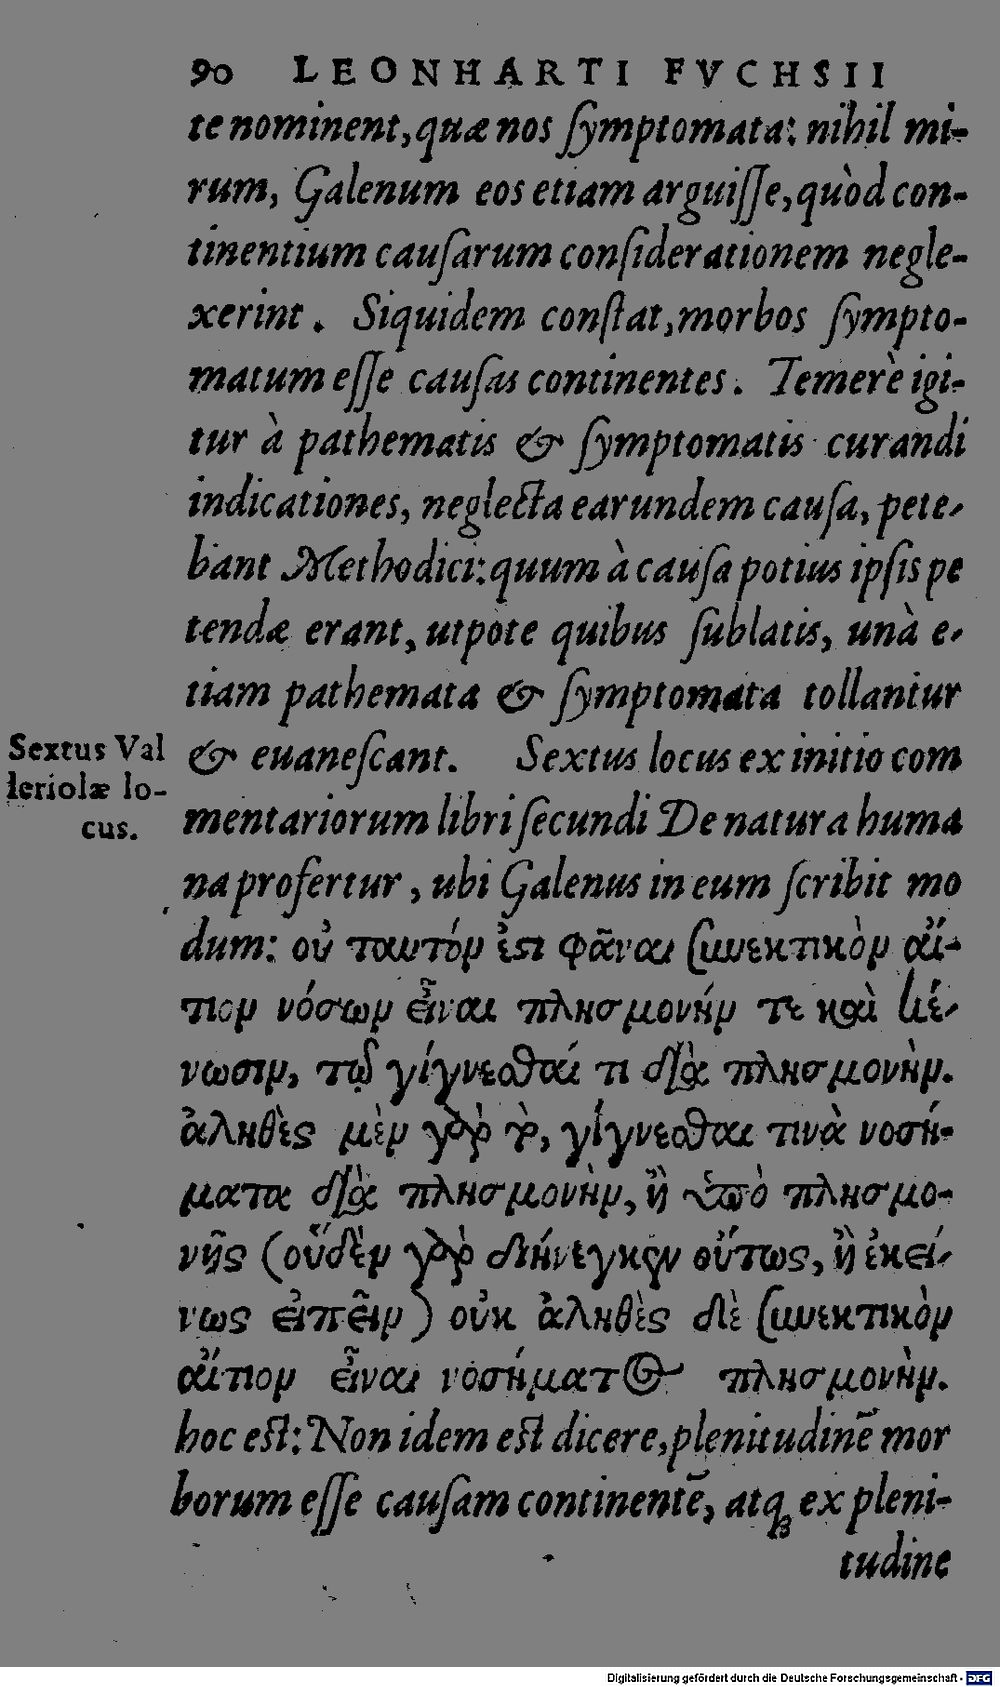 90 LEONHARTI FVCHSII
te nominent, quæ nos ſymptomata: nihil mi-
rum, Galenum eos etiam arguiſſe, quòd con-
tinentium cauſarum conſiderationem negle-
xerint. Siquidem conſtat, morbos ſympto-
matum eſſe cauſas continentes. Temerè igi-
tur à pathematis & ſymptomatis curandi
indicationes, neglecta earundem cauſa, pete-
bant Methodici: quum à cauſa potius ipſis pe
tendæ erant, utpote quibus ſublatis, unà e-
tiam pathemata & ſymptomata tollantur
& euaneſcant. Sextus locus ex initio com
Sextus Val
leriolæ lo-
cus.
mentariorum libri ſecundi De natura huma
na profertur, ubi Galenus in eum ſcribit mo
dum: οὐ ταυτόν ἐστι φᾶναι συνεκτικὸν αἴ-
τιον νόσων εἶναι πλησμονήν τε καὶ κέ-
νωσιν, τῷ γίγνεσθαί τι διὰ πλησμονὴν.
ἀληθὲς μὲν γὰρ τὸ, γίγνεσθαι τινὰ νοσή-
ματα διὰ πλησμονὴν, ἢ ὑπὸ πλησμο-
νῆς (οὔδὲν γὰρ διήνεγκεν οὕτως, ἢ ἐκεί-
νως εἰπεῖν) οὐκ ἀληθὲς δὲ συνεκτικὸν
αἴτιον εἶναι νοσήματος πλησμονὴν.
hoc eſt: Non idem eſt dicere, plenitudinē mor
borum eſſe cauſam continentē, atqꝫ ex pleni-
tudine
Digitalisierung gefördert durch die Deutsche Forschungsgemeinschaft - DFG